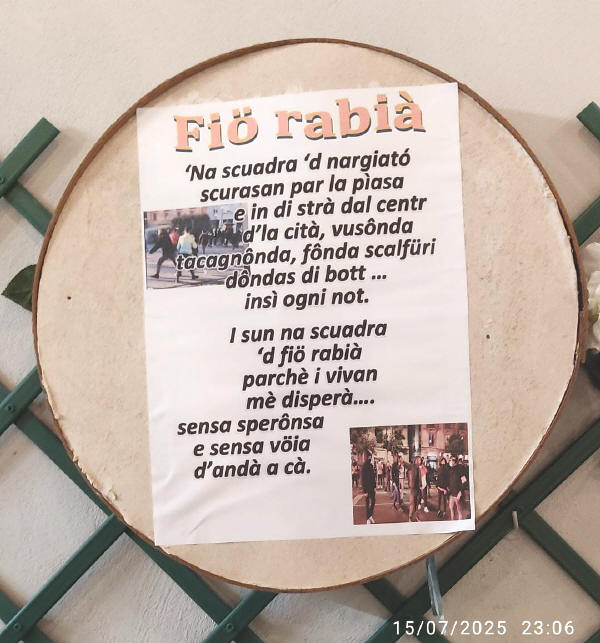 Fiö rabià
‘Na scuadra ‘d nargiató
scurasan par la pìasa
e in di strà dal centr
d’la cità, vusônda
tacagnônda, fônda scalfüri
dôndas di bott ...
insì ogni not.
I sun na scuadra
‘d fiö rabià
parchè i vivan
mè disperà....
sensa sperônsa
e sensa vöia
d’andà a cà.
15/07/2025 23:06